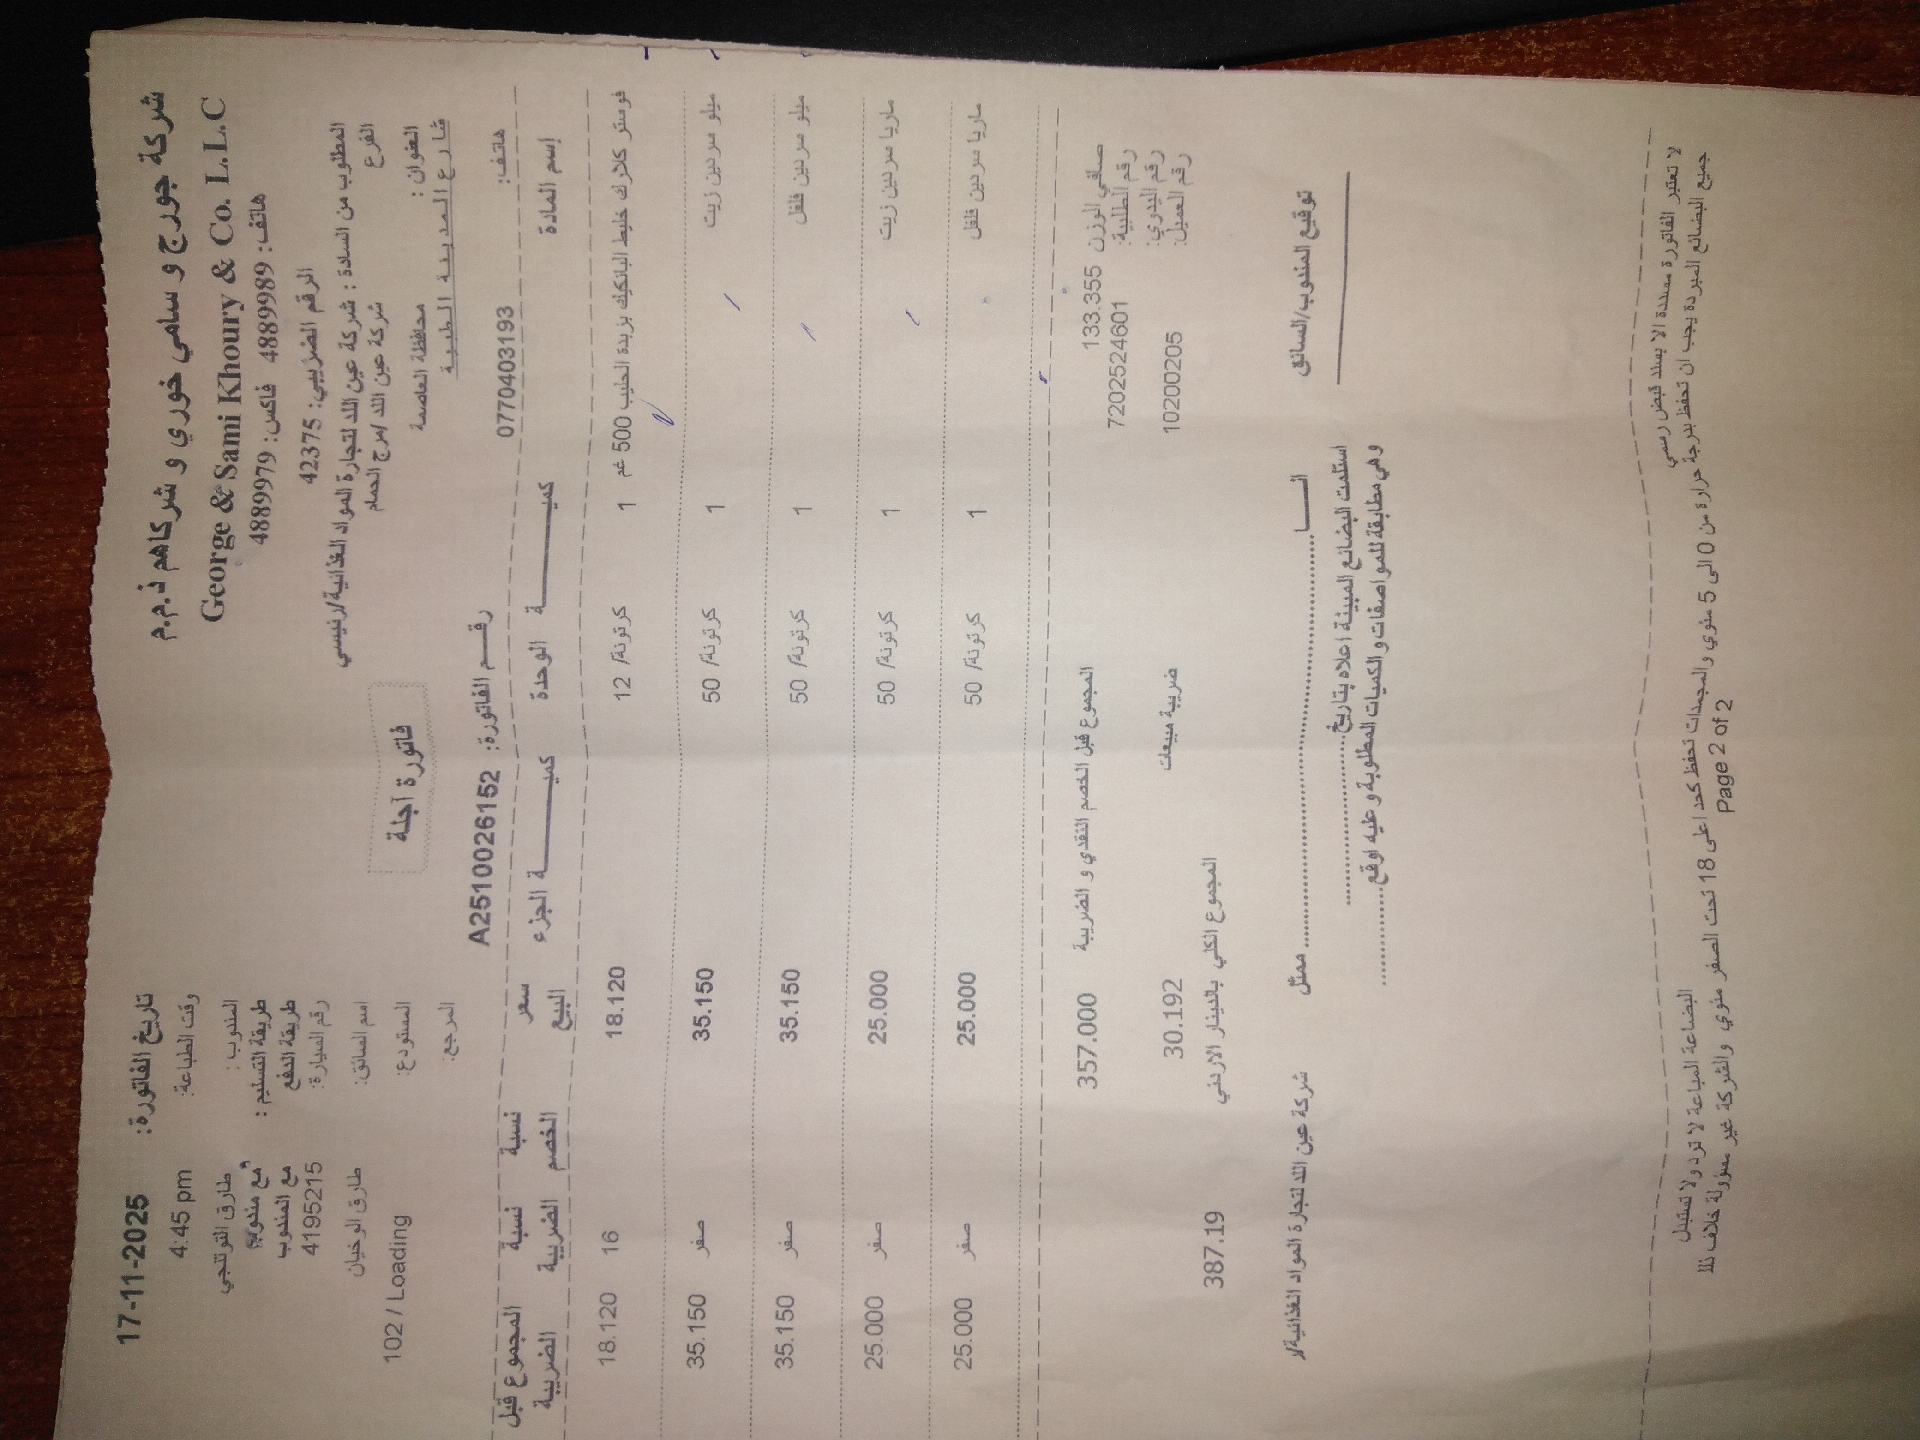 شركة جورج و سامي خوري و شركاهم ذ.م.م
George & Sami Khoury & Co. L.L.C
هاتف: 4889989 فاكس: 4889979
الرقم الضريبي: 42375
المطلوب من السادة : شركة عين اللد لتجارة المواد الغذائية/رئيسي
الفرع شركة عين اللد /مرج الحمام
العنوان : محافظة العاصمة
شارع المدينة الطبية
هاتف: 0770403193
تاريخ الفاتورة: 17-11-2025
وقت الطباعة: 4:45 pm
المندوب : طارق القوتلجي
طريقة التسليم : مع مندوب
طريقة الدفع مع المندوب
رقم السيارة: 4195215
اسم السائق: طارق الوخيان
المستودع: 102 / Loading
المرجع:
فاتورة آجلة
رقم الفاتورة: A2510026152
إسم المادة كمية الوحدة كمية الجزء سعر البيع نسبة الخصم نسبة الضريبة المجموع قبل الضريبة
فوستر كلارك خليط البانكيك بزبدة الحليب 500 غم 1 كرتونة/ 12 18.120 16 18.120
ميلو سردين زيت 1 كرتونة/ 50 35.150 صفر 35.150
ميلو سردين فلفل 1 كرتونة/ 50 35.150 صفر 35.150
ماريا سردين زيت 1 كرتونة/ 50 25.000 صفر 25.000
ماريا سردين فلفل 1 كرتونة/ 50 25.000 صفر 25.000
صافي الوزن 133.355 المجموع قبل الخصم النقدي و الضريبة 357.000
رقم الطلبية: 72025246​01
رقم اليدوي:
رقم العميل: 10200205 ضريبة مبيعات 30.192
المجموع الكلي بالدينار الاردني 387.19
توقيع المندوب/السائق
انـــا ممثل شركة عين اللد لتجارة المواد الغذائية/ر
استلمت البضائع المبينة اعلاه بتاريخ
وهي مطابقة للمواصفات والكميات المطلوبة و عليه اوقع
لا تعتبر الفاتورة مسددة الا بسند قبض رسمي البضاعة المباعة لا ترد ولا تستبدل
جميع البضائع المبردة يجب ان تحفظ بدرجة حرارة من 0 الى 5 مئوي والمجمدات تحفظ كحد اعلى 18 تحت الصفر مئوي والشركة غير مسؤولة خلاف ذلك
Page 2 of 2